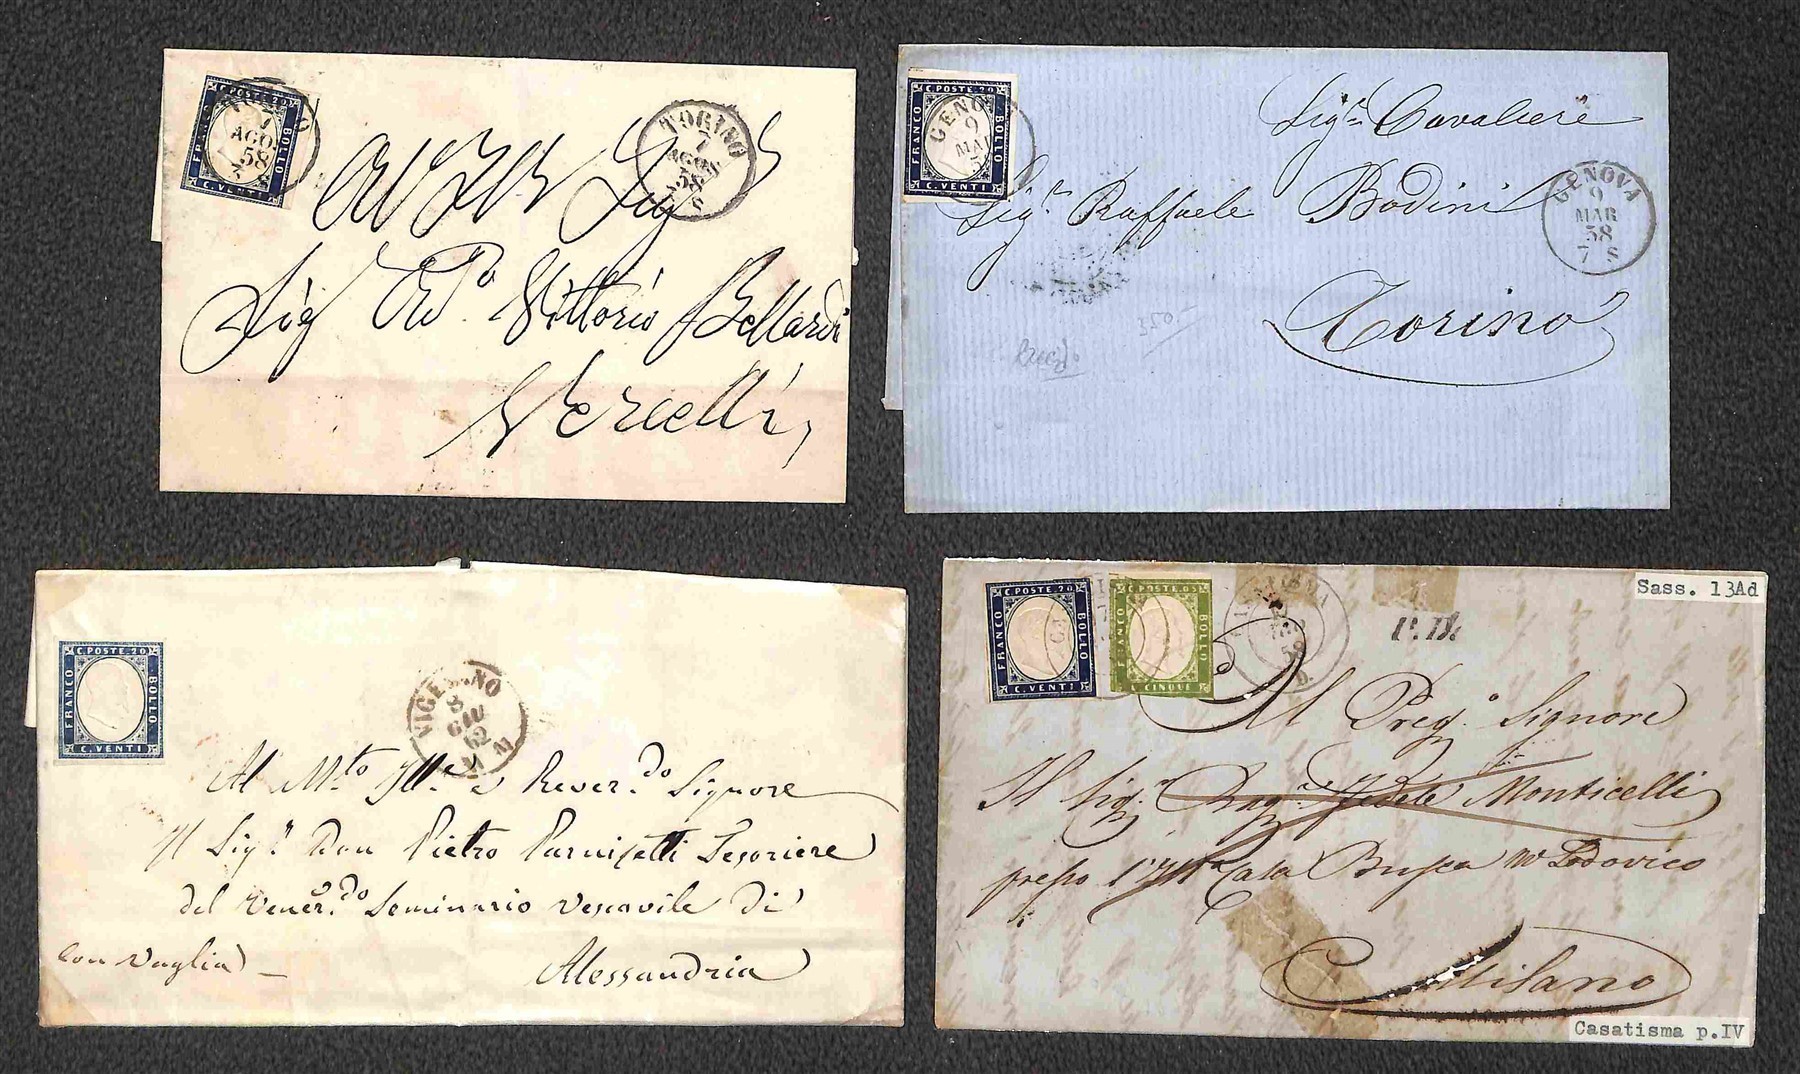 C. POSTE 20
FRANCO
BOLLO
C. VENTI
7
AGO.
58
TORINO
7
AGOS
58
S
Sig
Sig Vittorio Bellardi
Vercelli,
C. POSTE 20
FRANCO
BOLLO
C. VENTI
GENO
9
MAR
5
Sigr. Cavaliere
Sigr. Raffaele Bodini
Torino
GENOVA
9
MAR
58
7 S
C. POSTE 20
FRANCO
BOLLO
C. VENTI
8
GIU
62
M
Al Mto Illre e Rever.do Signore
Il Sigr. Don Pietro Parnisetti Tesoriere
del Vener.do Seminario Vescovile di
con vaglia
Alessandria
C. POSTE 20
FRANCO
BOLLO
C. VENTI
C. POSTE 05
FRANCO
BOLLO
C. CINQUE
P.D.
Sass. 13Ad
Al Preg.o Signore
Il Sig.r Rag.r Fedele Monticelli
presso l'Illma Casa Busca No Lodovico
Milano
Casatisma p.IV